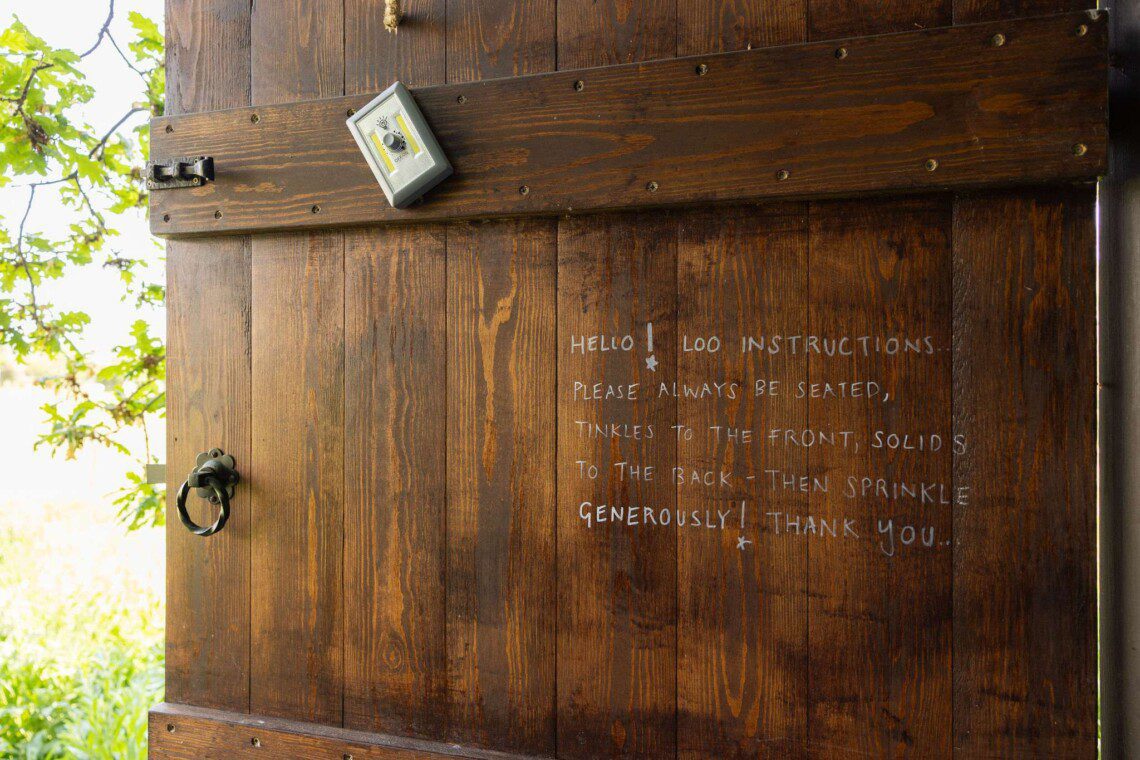 HELLO! LOO INSTRUCTIONS..
PLEASE ALWAYS BE SEATED,
TINKLES TO THE FRONT, SOLIDS
TO THE BACK - THEN SPRINKLE
GENEROUSLY! THANK YOU..